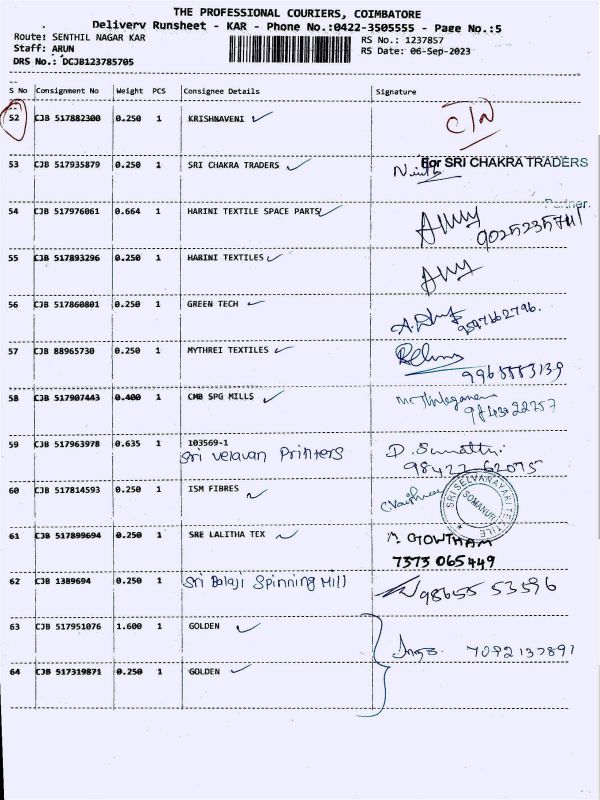 THE PROFESSIONAL COURIERS, COIMBATORE
Delivery Runsheet - KAR - Phone No.:0422-3505555 - Page No.:5
Route: SENTHIL NAGAR KAR
RS No.: 1237857
Staff: ARUN
RS Date: 06-Sep-2023
DRS No.: DCJB123785705
S No Consignment No Weight PCS Consignee Details Signature
52 CJB 517882300 0.250 1 KRISHNAVENI
53 CJB 517935879 0.250 1 SRI CHAKRA TRADERS For SRI CHAKRA TRADERS
Partner.
54 CJB 517976061 0.664 1 HARINI TEXTILE SPACE PARTS
55 CJB 517893296 0.250 1 HARINI TEXTILES
56 CJB 517860801 0.250 1 GREEN TECH
57 CJB 88965730 0.250 1 MYTHREI TEXTILES
58 CJB 517907443 0.400 1 CMB SPG MILLS
59 CJB 517963978 0.635 1 103569-1
Sri Velavan Printers
60 CJB 517814593 0.250 1 ISM FIBRES SRI SELVANAYAKI TEXTILE SOMANUR
61 CJB 517899694 0.250 1 SRE LALITHA TEX M. GOWTHAM
7373 065449
62 CJB 1389694 0.250 1 Sri Balaji Spinning Mill 98655 53596
63 CJB 517951076 1.600 1 GOLDEN
7092137891
64 CJB 517319871 0.250 1 GOLDEN